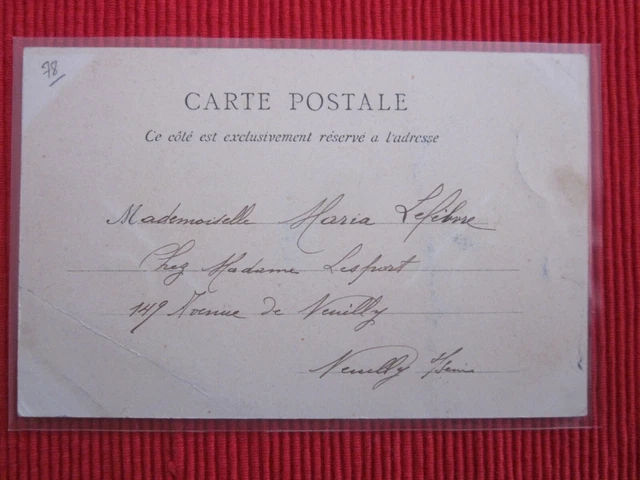 78
CARTE POSTALE
Ce côté est exclusivement réservé a l'adresse
Mademoiselle Maria Lefèbvre
Chez Madame Lesport
149 Avenue de Neuilly
Neuilly s/Seine